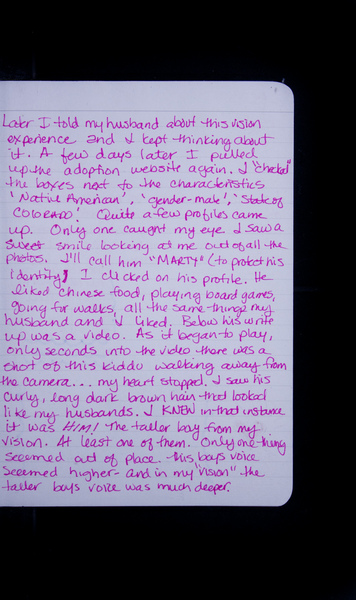 Later I told my husband about this vision
experience and I kept thinking about
it. A few days later I pulled
up the adoption website again. I "checked"
the boxes next to the characteristics
'Native American', 'gender-male', 'State of
COLORADO! Quite a few profiles came
up. Only one caught my eye I saw a
sweet smile looking at me out of all the
photos. I'll call him "MARTY" (to protect his
identity) I clicked on his profile. He
liked chinese food, playing board games,
going for walks, all the same things my
husband and I liked. Below his write
up was a video. As it began to play,
only seconds into the video there was a
shot of this kiddo walking away from
the camera... my heart stopped. I saw his
curly, long dark brown hair that looked
like my husbands. I KNEW in that instance
it was HIM! The taller boy from my
vision. At least one of them. Only one thing
seemed out of place. this boys voice
seemed higher- and in my "vision" the
taller boys voice was much deeper.